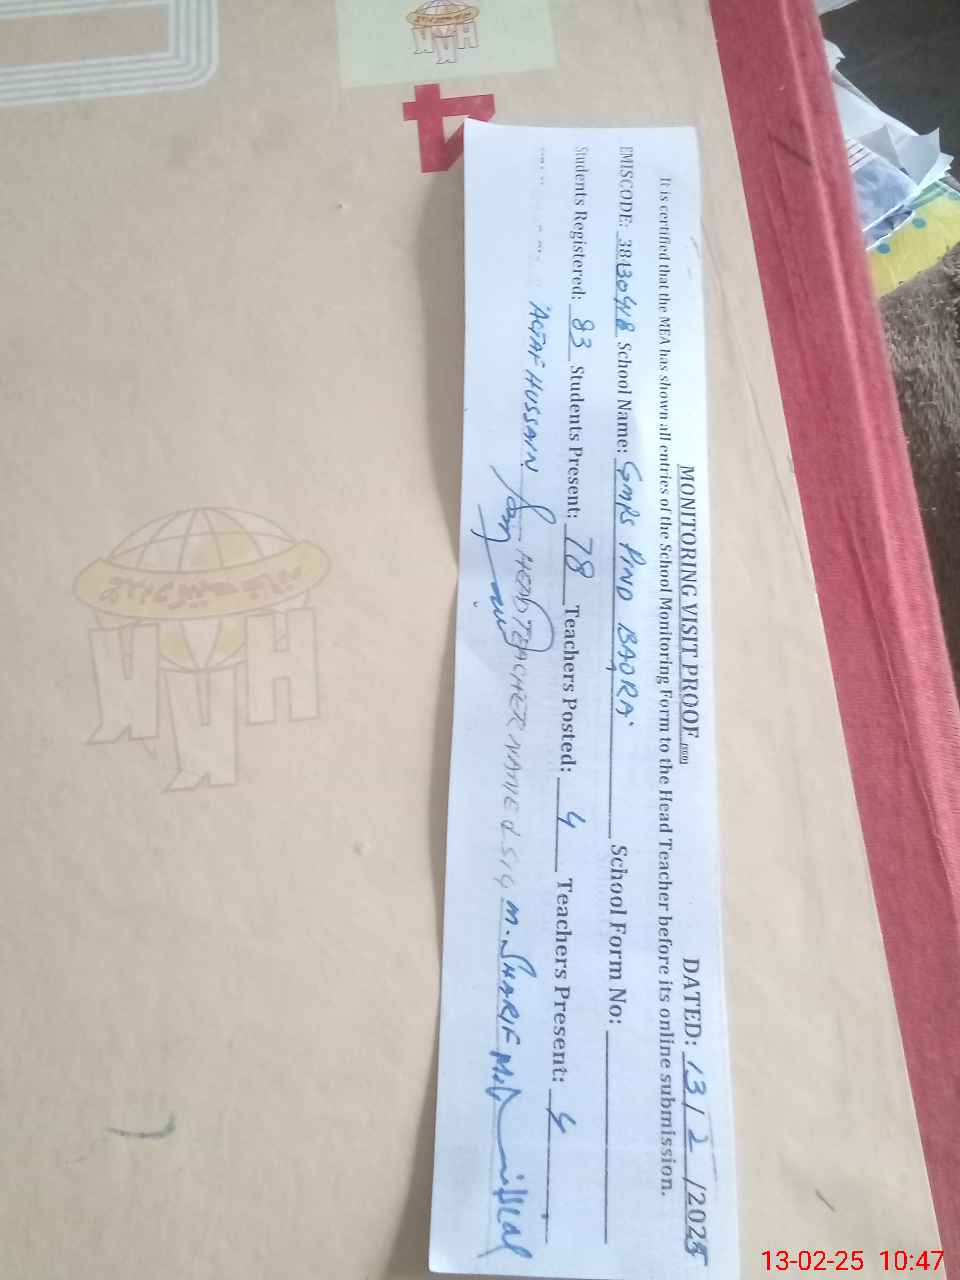 4
MONITORING VISIT PROOF (SGD) DATED: 13/2/2025
It is certified that the MEA has shown all entries of the School Monitoring Form to the Head Teacher before its online submission.
EMISCODE: School Name: GMPS PIND BAORA School Form No:
Students Registered: 83 Students Present: 78 Teachers Posted: 4 Teachers Present: 4
HUSSAIN HEAD TEACHER NAME & SIG M. SHARIF
13-02-25 10:47